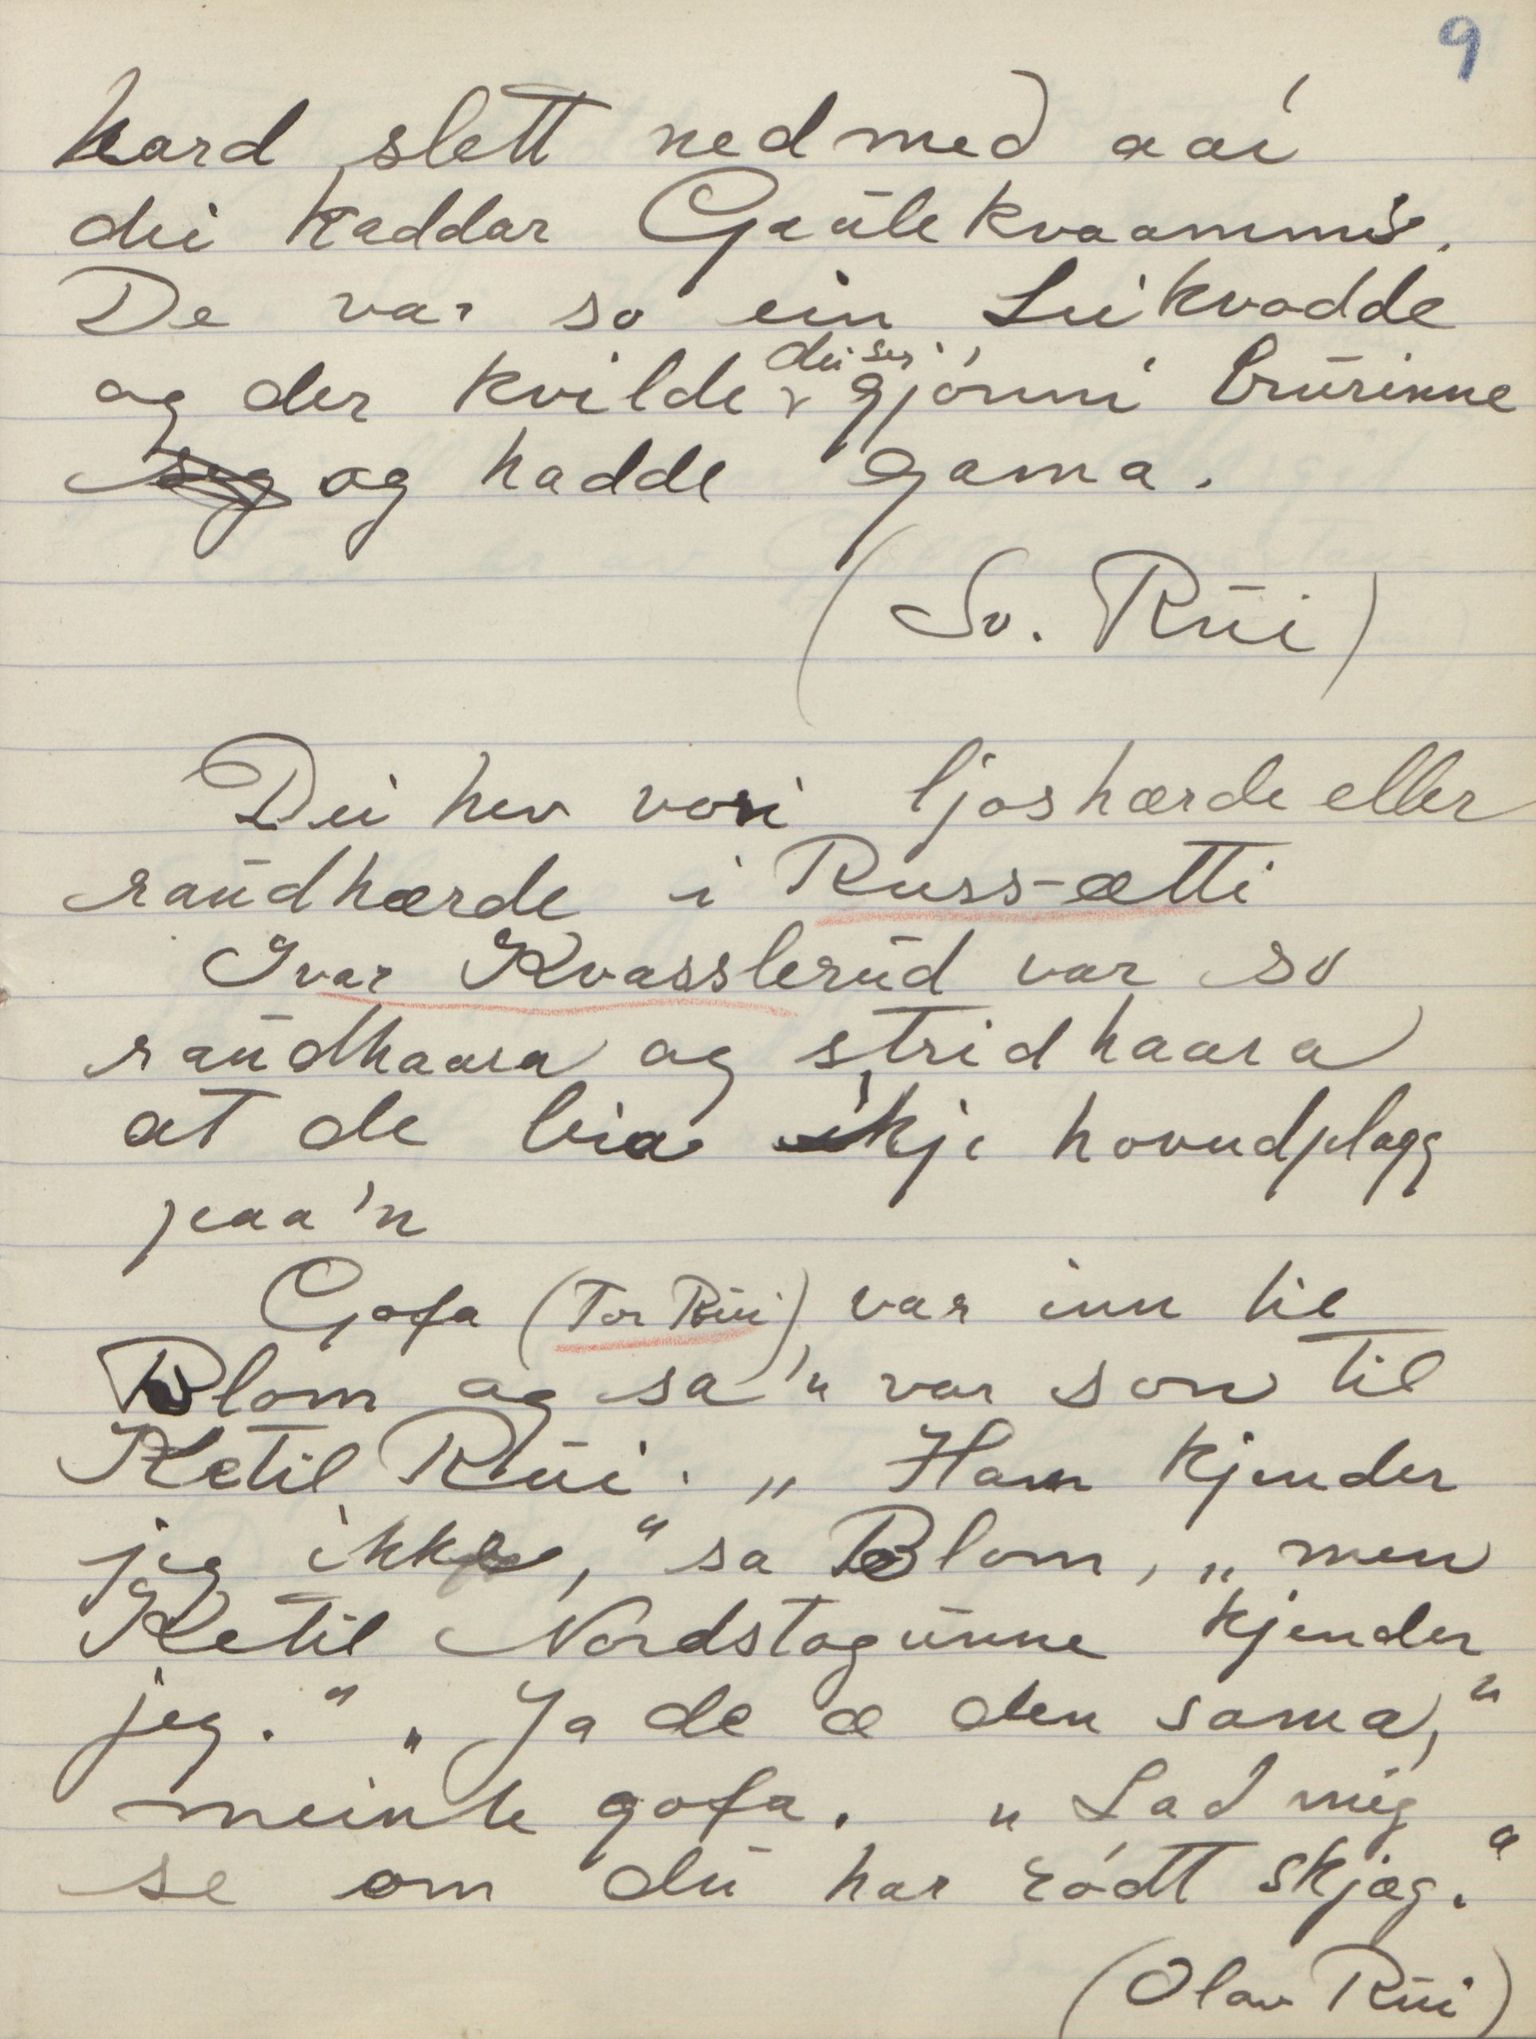 9
hard slett ned med aai
dei kaddar Gaulekvaammis.
De var so ein Leikvodde
og der kvilde dei ser gjønni brurinne
seg og hadde gama.
(Sv. Rui)
Dei hev vori ljoshærde eller
raudhærde i Russ-ætti
Ivar Kvasslerud var so
raudhaara og stridhaara
at de bia ikje hovudplagg
paa'n
Gofa (Tor Rui) var inn til
Blom og sa 'n var son til
Ketil Rui. „Ham kjender
jeg ikke," sa Blom, „men
Ketil Nordstogunne kjender
jeg." „Ja de æ den sama,"
meinte gofa. „Lad mig
se om du har rödt skjæg."
(Olav Rui)